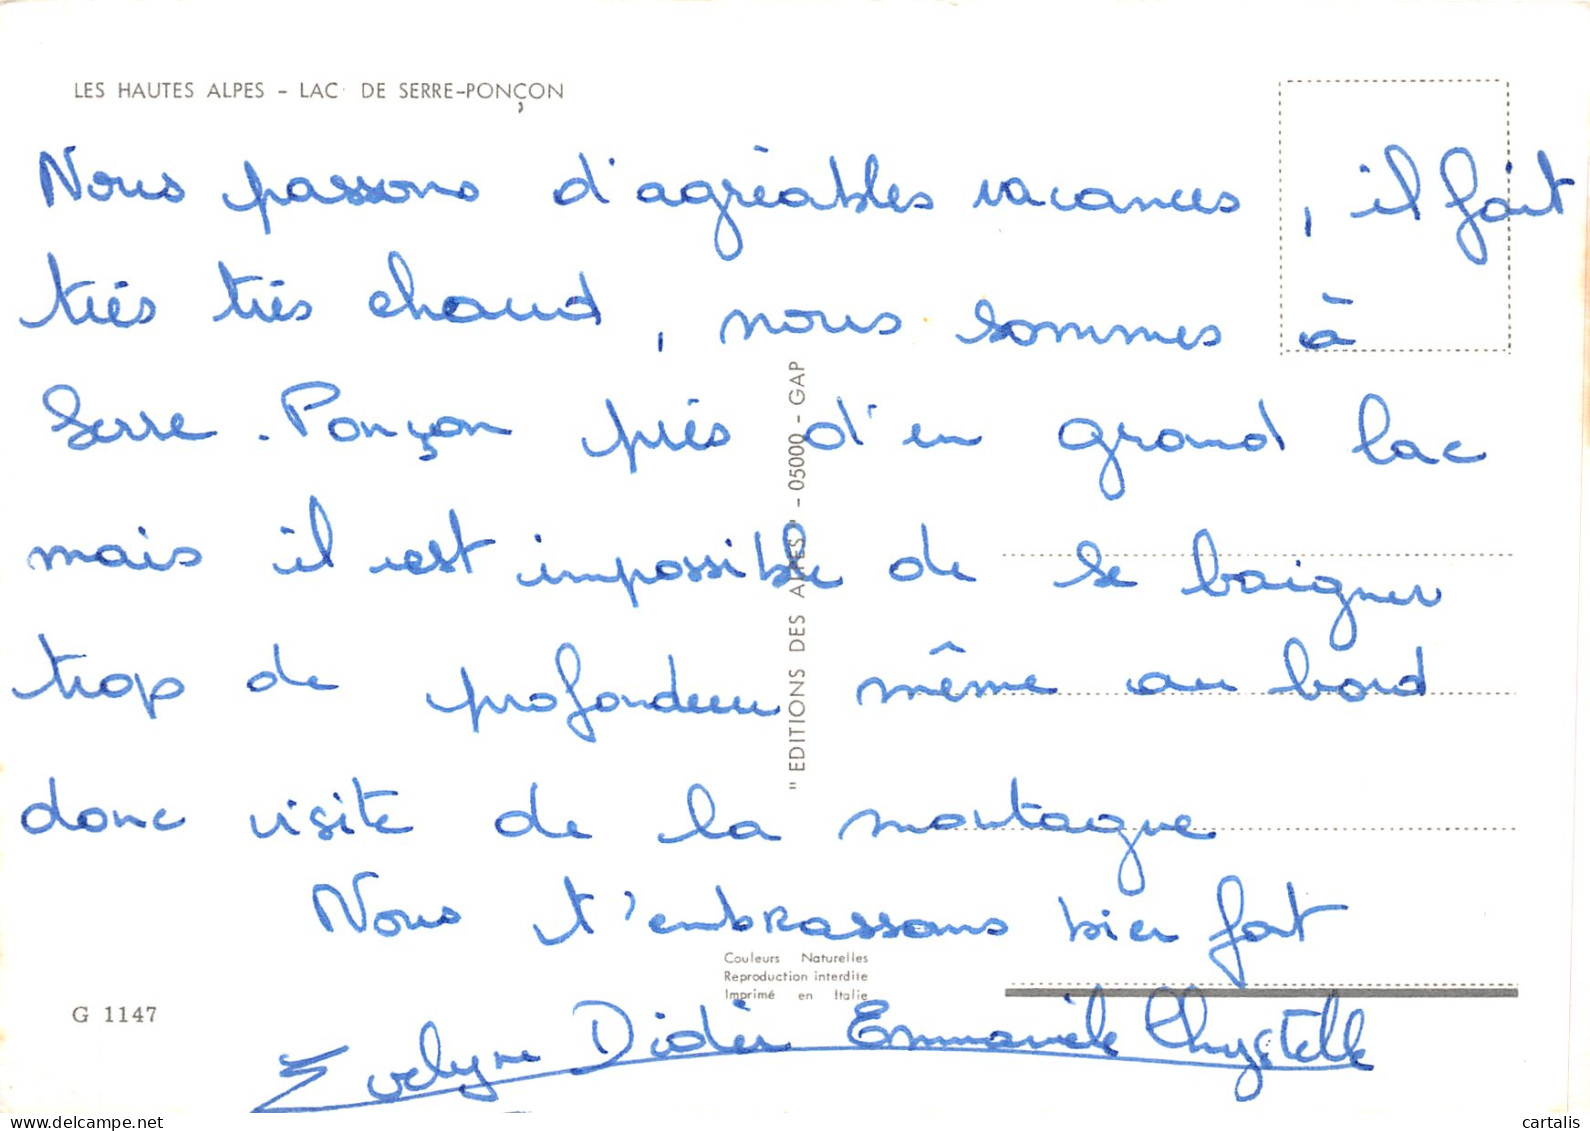 LES HAUTES ALPES - LAC DE SERRE-PONÇON
Nous passons d'agréables vacances, il fait
très très chaud, nous sommes à
Serre-Ponçon près d'un grand lac
mais il est impossible de se baigner
trop de profondeur même au bord
donc visite de la montagne
Nous t'embrassons bien fort
Evelyne Didier Emmanuèle Chrystelle
"EDITIONS DES ALPES" - 05000 - GAP
Couleurs Naturelles
Reproduction interdite
Imprimé en Italie
G 1147
cartalis